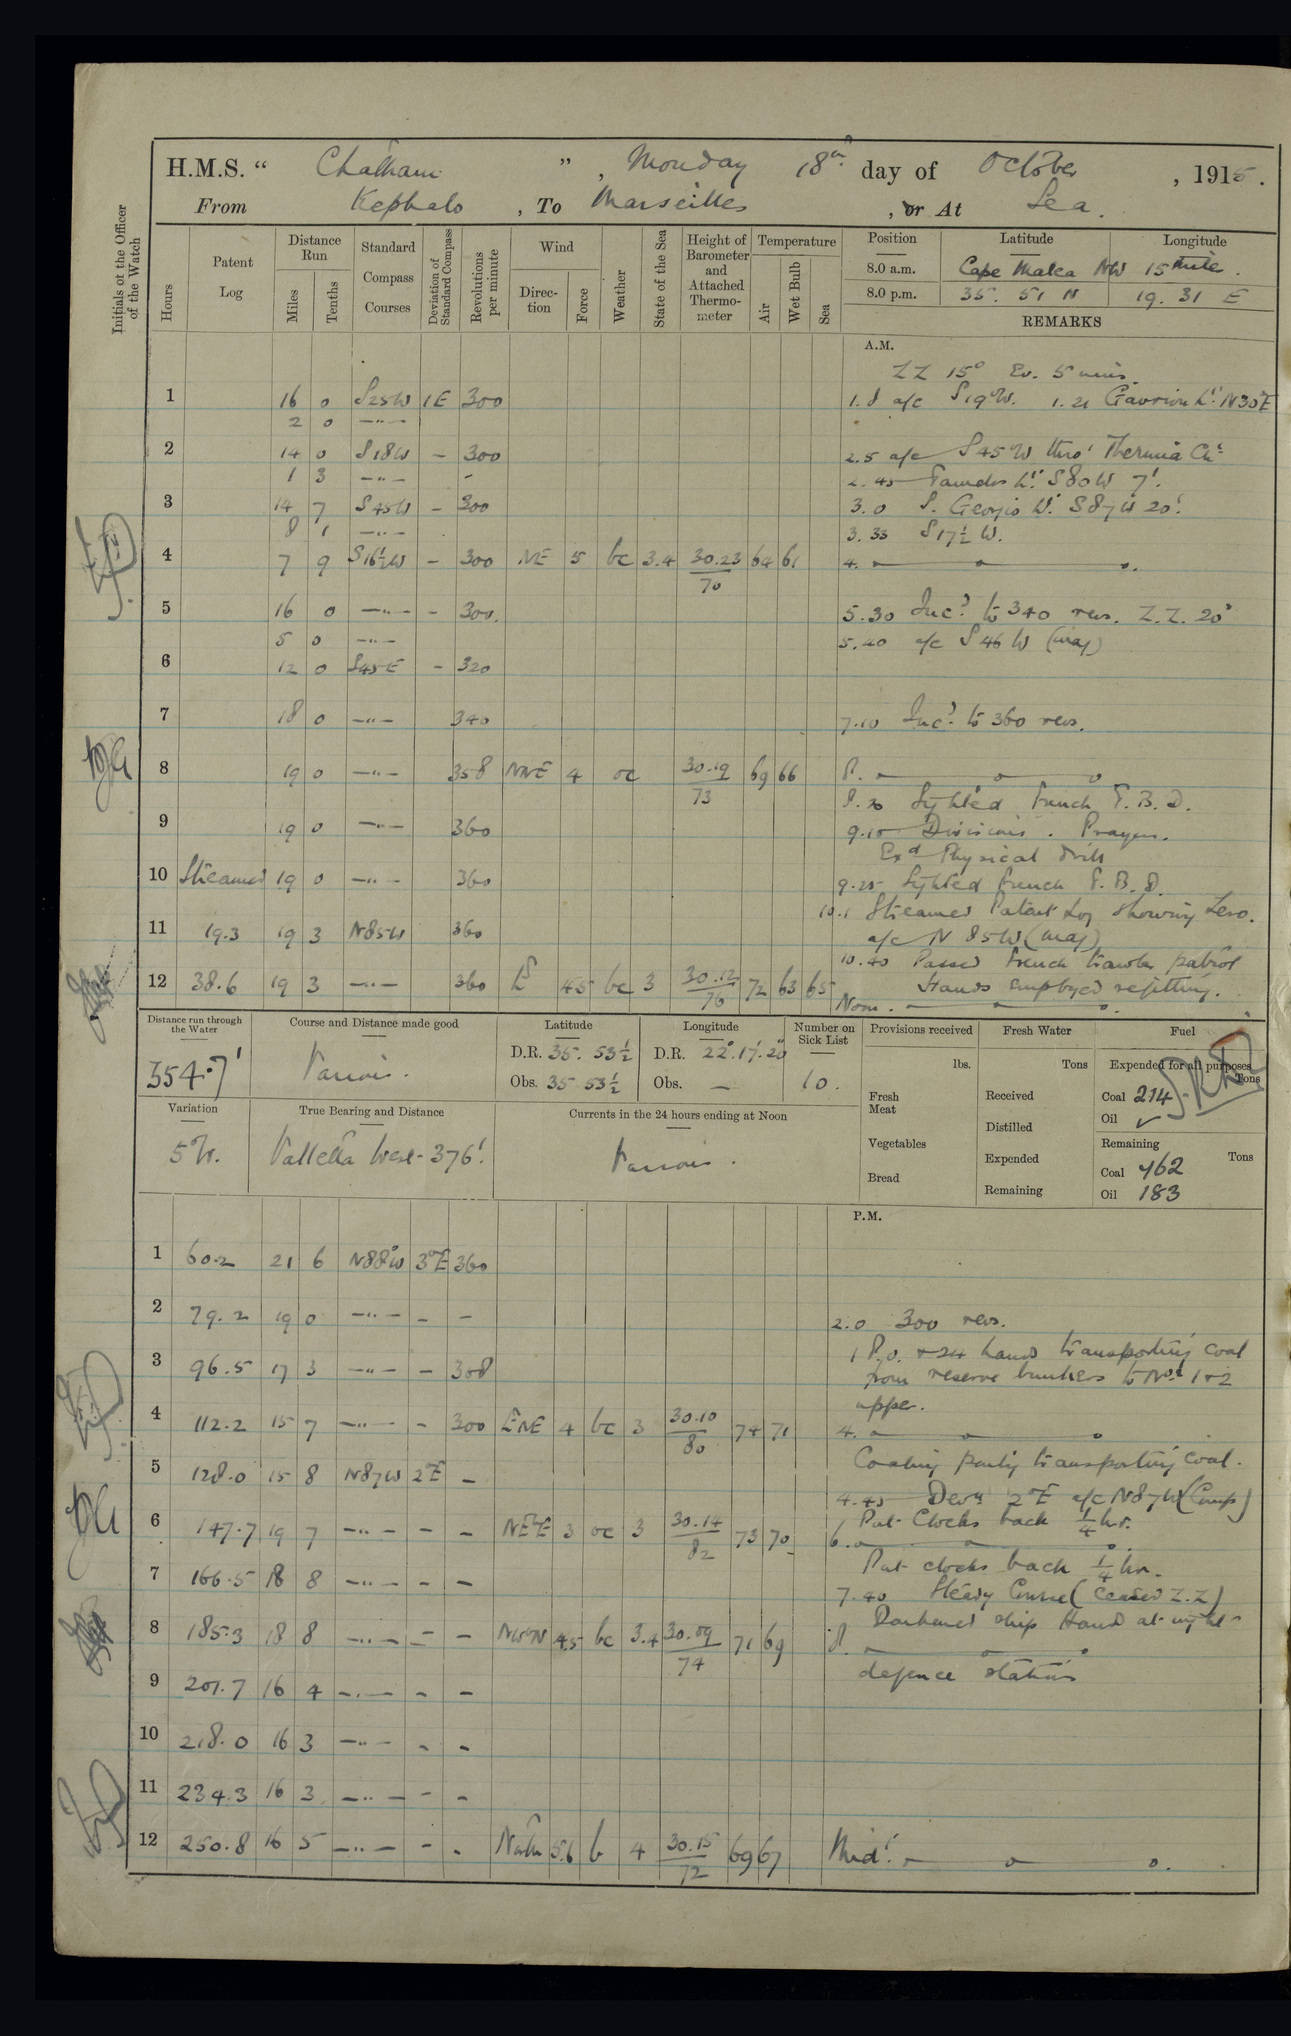 H.M.S. “ Chatham ” , Monday 18th day of October , 1915.
From Kephalo , To Marseilles , or At Sea.
Initials of the Officer of the Watch
Hours
Patent Log
Distance Run
Miles
Tenths
Standard Compass Courses
Deviation of Standard Compass
Revolutions per minute
Wind
Direction
Force
Weather
State of the Sea
Height of Barometer and Attached Thermometer
Temperature
Air
Wet Bulb
Sea
Position
Latitude
Longitude
8.0 a.m. Cape Malea NW 15 mile.
8.0 p.m. 35. 51 N 19. 31 E
REMARKS
A.M.
ZZ 15° Ev. 5 mins.
1 16 0 S25W 1E 300 1.8 a/c S19°W. 1.21 Gavrion Lt N30°E
2 0 —„—
2 14 0 S18W – 300 2.5 a/c S45°W thro' Thermia Chl
1 3 —„— - 2.45 Lt S80W 7'.
3 14 7 S45W – 300 3.0 S. Georgio Lt S87W 20'.
8 1 —„— 3.33 S17½W.
4 7 9 S16½W – 300 NE 5 bc 3.4 30.23/70 64 61 4.
5 16 0 —„— – 300. 5.30 Incd to 340 revs. Z.Z. 20°
5 0 —„— 5.40 a/c S46W (mag)
6 12 0 S45E – 320
7 18 0 —„— 340 7.10 Incd to 360 revs.
8 19 0 —„— 358 NNE 4 oc 30.19/73 69 66 8.
8.20 Sighted French T.B.D.
9 19 0 —„— 360 9.10 Divisions. Prayers.
Exd Physical drill
10 Streamed 19 0 —„— 360 9.25 Sighted French T.B.D.
10.1 Streamed Patent Log showing Zero.
11 19.3 19 3 N85W 360 a/c N 85W (mag)
10.40 Passed French trawler patrol
12 38.6 19 3 —„— 360 E 45 bc 3 30.12/76 72 63 65 Hands employed refitting.
Noon.
Distance run through the Water
354.7'
Course and Distance made good
Various.
Latitude
D.R. 35. 53½
Obs. 35 53½
Longitude
D.R. 22° 17' 20"
Obs. —
Number on Sick List
10.
Provisions received
lbs.
Fresh Meat
Vegetables
Bread
Fresh Water
Tons
Received
Distilled
Expended
Remaining
Fuel
Expended for all purposes
Tons
Coal 214
Oil ✓
Remaining
Tons
Coal 462
Oil 183
Variation
5°W.
True Bearing and Distance
Valletta West - 376'.
Currents in the 24 hours ending at Noon
Various.
P.M.
1 60.2 21 6 N88°W 3°E 360
2 79.2 19 0 —„— – – 2.0 300 revs.
1 P.O. + 24 hands transporting coal
3 96.5 17 3 —„— – 308 from reserve bunkers to Nos 1 + 2
upper.
4 112.2 15 7 —„— – 300 ENE 4 bc 3 30.10/80 74 71 4.
Coaling party transporting coal.
5 128.0 15 8 N87W 2°E –
4.45 Devn 2°E a/c N87W (Comp)
Put Clocks back ¼ hr.
6 147.7 19 7 —„— – – NEbE 3 oc 3 30.14/82 73 70 6.
Put clocks back ¼ hr.
7 166.5 18 8 —„— – –
7.40 Steady Course (Ceased Z.Z)
Darkened ship Hands at night
8 185.3 18 8 —„— – – NWbN 4.5 bc 3.4 30.09/74 71 69 8.
defence stations
9 201.7 16 4 —„— – –
10 218.0 16 3 —„— – –
11 234.3 16 3 —„— – –
12 250.8 16 5 —„— – – North 5.6 b 4 30.15/72 69 67 Midt.